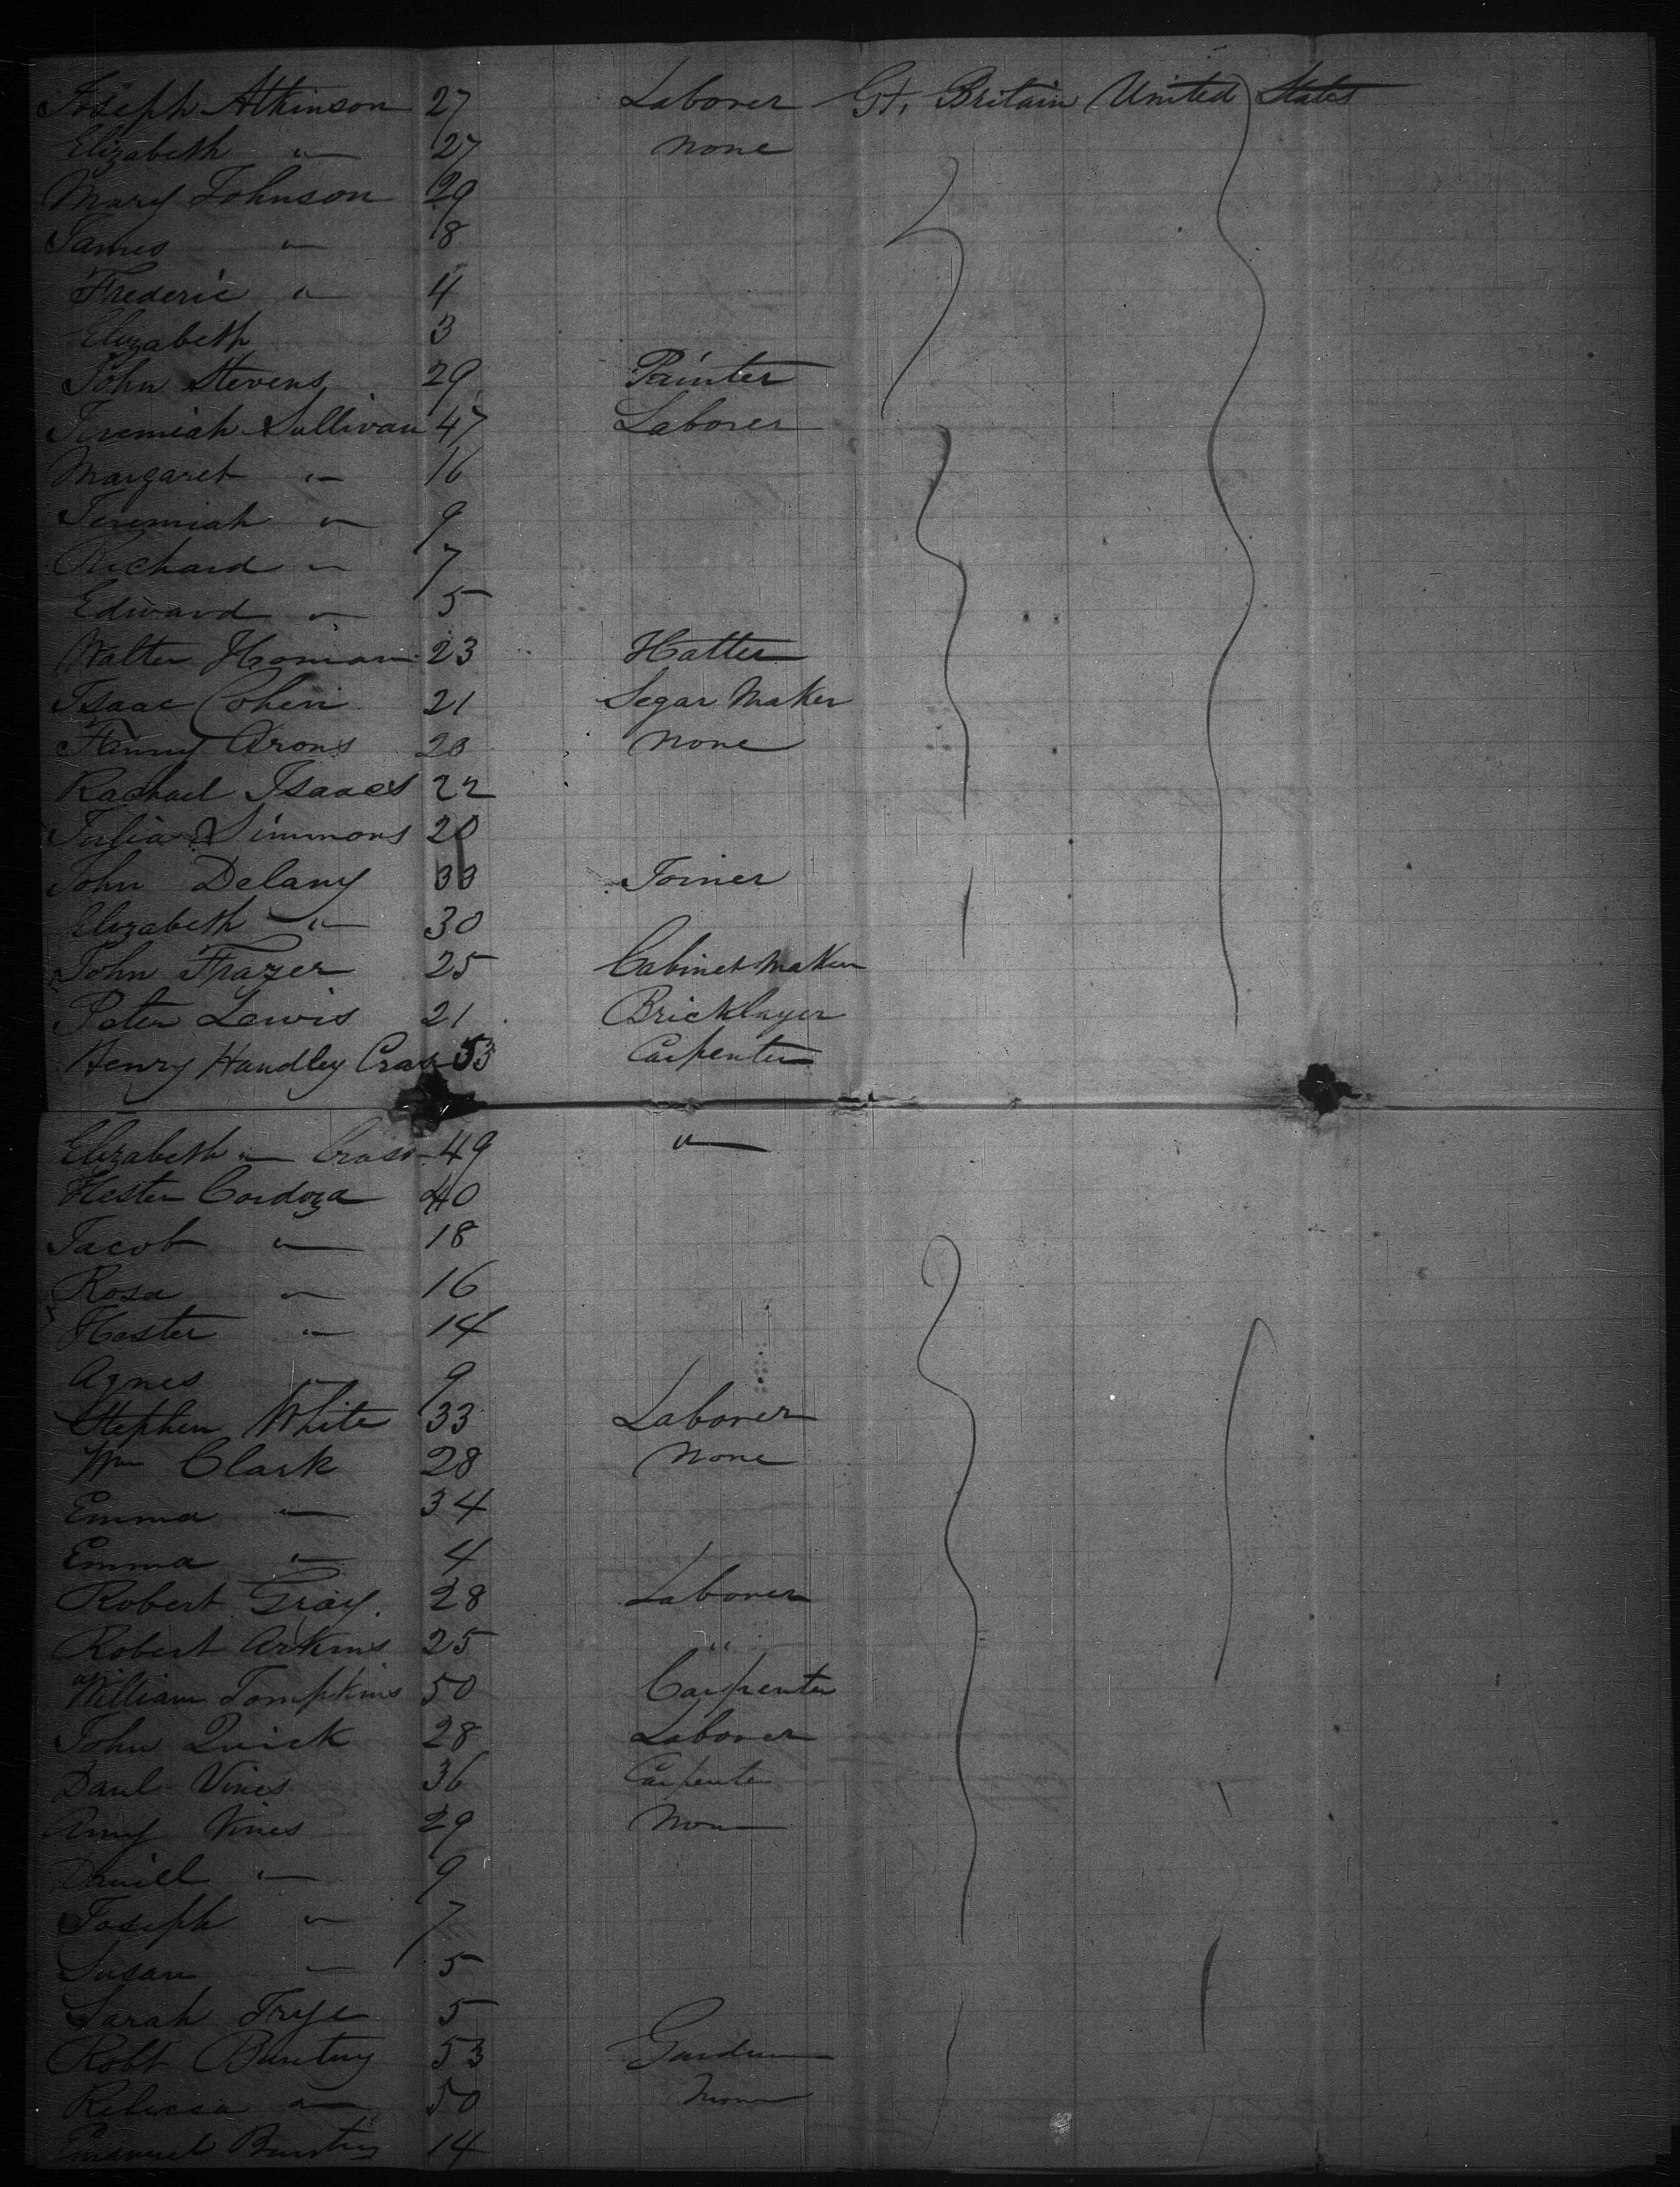 Joseph Atkinson 27 Laborer Gt. Britain United States
Elizabeth " 27 None
Mary Johnson 29
James " 8
Frederic " 4
Elizabeth 3
John Stevens 29 Painter
Jeremiah Sullivan 47 Laborer
Margaret " 16
Jeremiah " 9
Richard " 7
Edward " 5
Walter 23 Hatter
Isaac Cohen 21 Segar Maker
Fanny Arons 20 None
Rachael Isaacs 22
Julia Simmons 20
John Delany 33 Joiner
Elizabeth " 30
John Frazer 25 Cabinet Maker
Peter Lewis 21 Bricklayer
Henry Handley 53 Carpenter
Elizabeth " 49 "
Hester Cordoza 40
Jacob " 18
Rosa " 16
Hester " 14
Agnes " 9
Stephen White 33 Laborer
Wm Clark 28 None
Emma " 34
Emma " 4
Robert Gray. 28 Laborer
Robert 25 "
William Tompkins 50 Carpenter
John Quick 28 Laborer
Danl Vines 36 Carpenter
Amy Vines 29 None
Daniel " 9
Joseph " 7
Susan " 5
Sarah Frye 5
Robt 53
Rebecca " 50 None
Emanuel 14